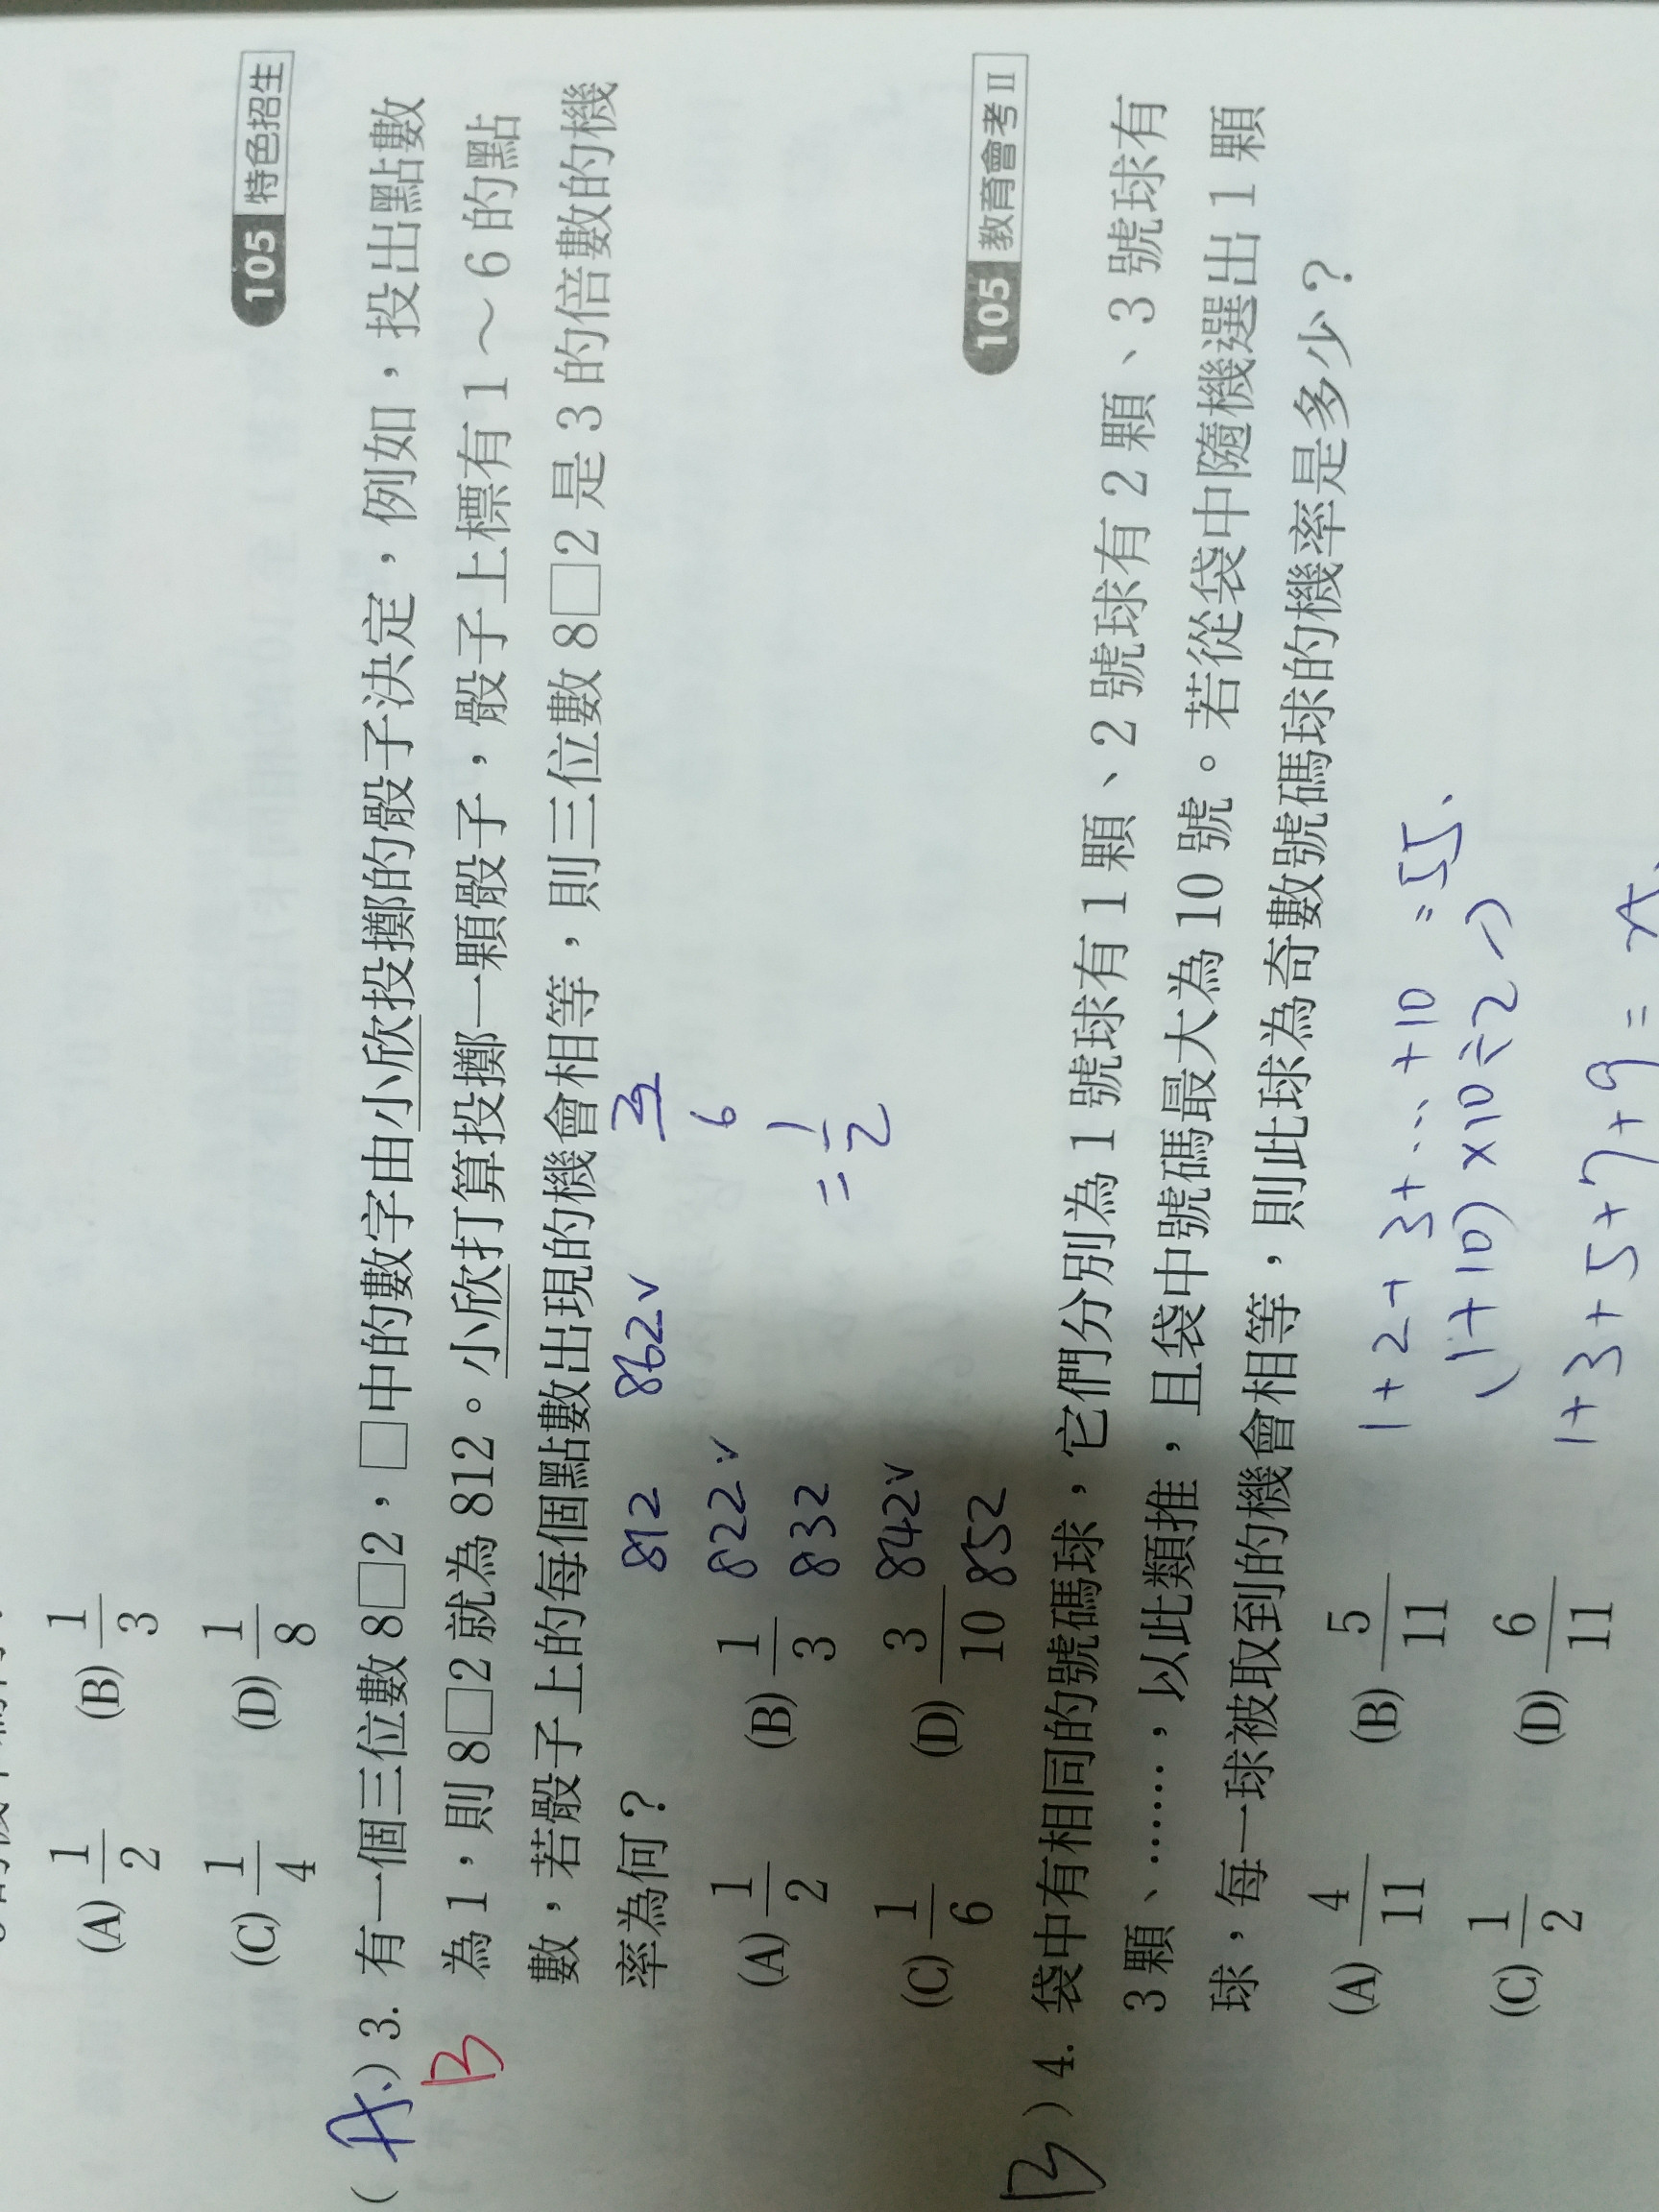 (A) 1/2 (B) 1/3
(C) 1/4 (D) 1/8
105 特色招生
(A.) 3. 有一個三位數8□2，□中的數字由小欣投擲的骰子決定，例如，投出點數
B
為1，則8□2就為812。小欣打算投擲一顆骰子，骰子上標有1～6的點
數，若骰子上的每個點數出現的機會相等，則三位數8□2是3的倍數的機
率為何？
(A) 1/2 (B) 1/3
(C) 1/6 (D) 3/10
812 862v
822v
832
842v
852
3/6
= 1/2
105 教育會考II
B ) 4. 袋中有相同的號碼球，它們分別為1號球有1顆、2號球有2顆、3號球有
3顆、……，以此類推，且袋中號碼最大為10號。若從袋中隨機選出1顆
球，每一球被取到的機會相等，則此球為奇數號碼球的機率是多少？
(A) 4/11 (B) 5/11
(C) 1/2 (D) 6/11
1+2+3+...+10 =55.
(1+10)×10÷2
1+3+5+7+9 =